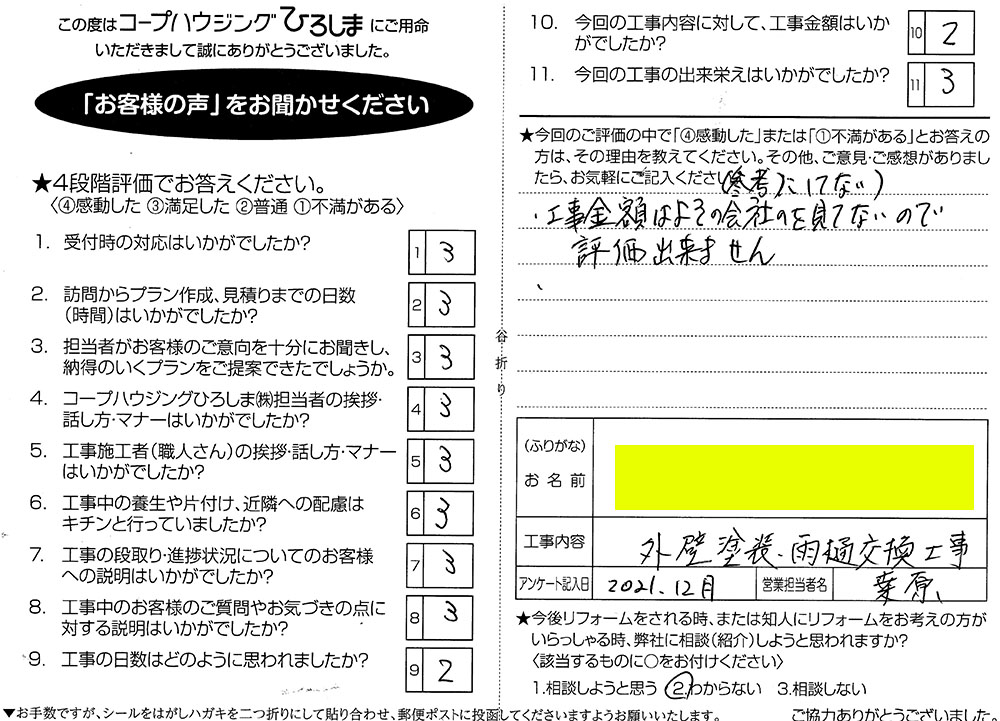 この度はコープハウジングひろしまにご用命
いただきまして誠にありがとうございました。
「お客様の声」をお聞かせください
★4段階評価でお答えください。
〈④感動した ③満足した ②普通 ①不満がある〉
1. 受付時の対応はいかがでしたか?
1 3
2. 訪問からプラン作成、見積りまでの日数
(時間)はいかがでしたか?
2 3
3. 担当者がお客様のご意向を十分にお聞きし、
納得のいくプランをご提案できたでしょうか。
3 3
4. コープハウジングひろしま㈱担当者の挨拶・
話し方・マナーはいかがでしたか?
4 3
5. 工事施工者(職人さん)の挨拶・話し方・マナー
はいかがでしたか?
5 3
6. 工事中の養生や片付け、近隣への配慮は
キチンと行っていましたか?
6 3
7. 工事の段取り・進捗状況についてのお客様
への説明はいかがでしたか?
7 3
8. 工事中のお客様のご質問やお気づきの点に
対する説明はいかがでしたか?
8 3
9. 工事の日数はどのように思われましたか?
9 2
▼お手数ですが、シールをはがしハガキを二つ折りにして貼り合わせ、郵便ポストに投函してくださいますようお願いいたします。
谷折り
10. 今回の工事内容に対して、工事金額はいか
がでしたか?
10 2
11. 今回の工事の出来栄えはいかがでしたか?
11 3
★今回のご評価の中で「④感動した」または「①不満がある」とお答えの
方は、その理由を教えてください。その他、ご意見・ご感想がありまし
たら、お気軽にご記入ください
(参考にしてない)
・工事金額はよその会社のを見てないので
評価出来ません
、
(ふりがな)
お名前
工事内容 外壁塗装・雨樋交換工事
アンケート記入日 2021.12月 営業担当者名 桒原
★今後リフォームをされる時、または知人にリフォームをお考えの方が
いらっしゃる時、弊社に相談(紹介)しようと思われますか?
〈該当するものに○をお付けください〉
1.相談しようと思う 2.わからない 3.相談しない
ご協力ありがとうございました。